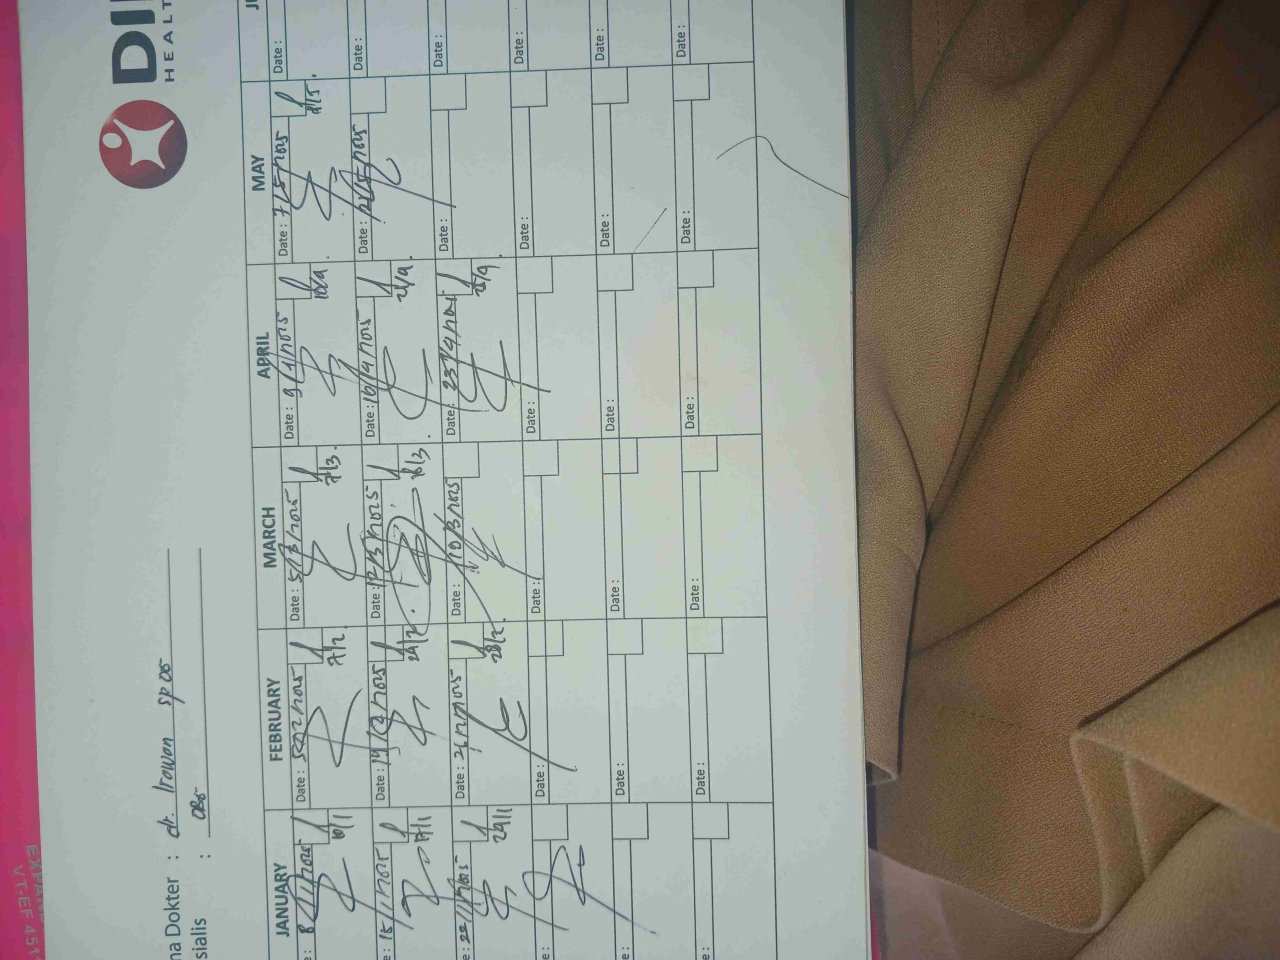 DI
HEALT
na Dokter : dr. Irawan sp OG
sialis : OBG
JANUARY FEBRUARY MARCH APRIL MAY
e: 8/1/2025 Date: 5/2/2025 Date: 5/3/2025 Date: 9/4/2025 Date: 7/5/2025 Date:
10/1 7/2 7/3
e: 15/1/2025 Date: 19/2/2025 Date: 12/3/2025 Date: 16/4/2025 Date: 21/5/2025 Date:
17/1 24/2 18/3 21/4
e: 22/1/2025 Date: 21/2/2025 Date: 10/3/2025 Date: 23/4/2025 Date: Date:
24/1 28/2 25/4
e: Date: Date: Date: Date: Date:
e: Date: Date: Date: Date: Date:
e: Date: Date: Date: Date: Date:
VT-EF 451